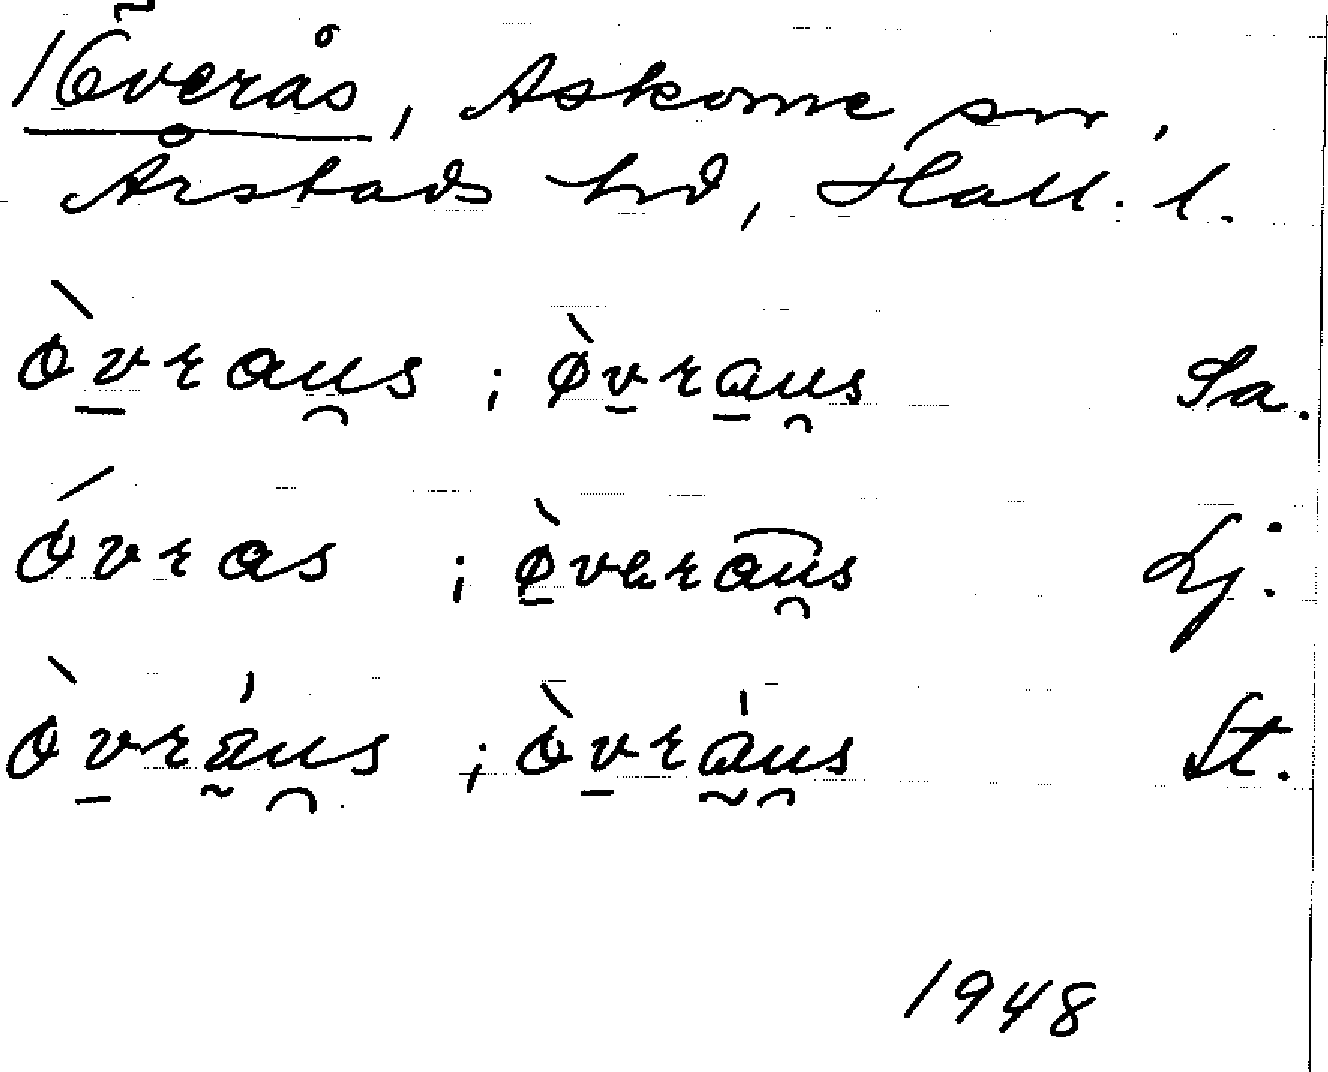 1 Överås, Askome sn,
Årstads hd, Hall. l.
òvraus ; øvraus Sa.
óvras ; øveraus Lj.
òvráus ; òvráus St.
1948